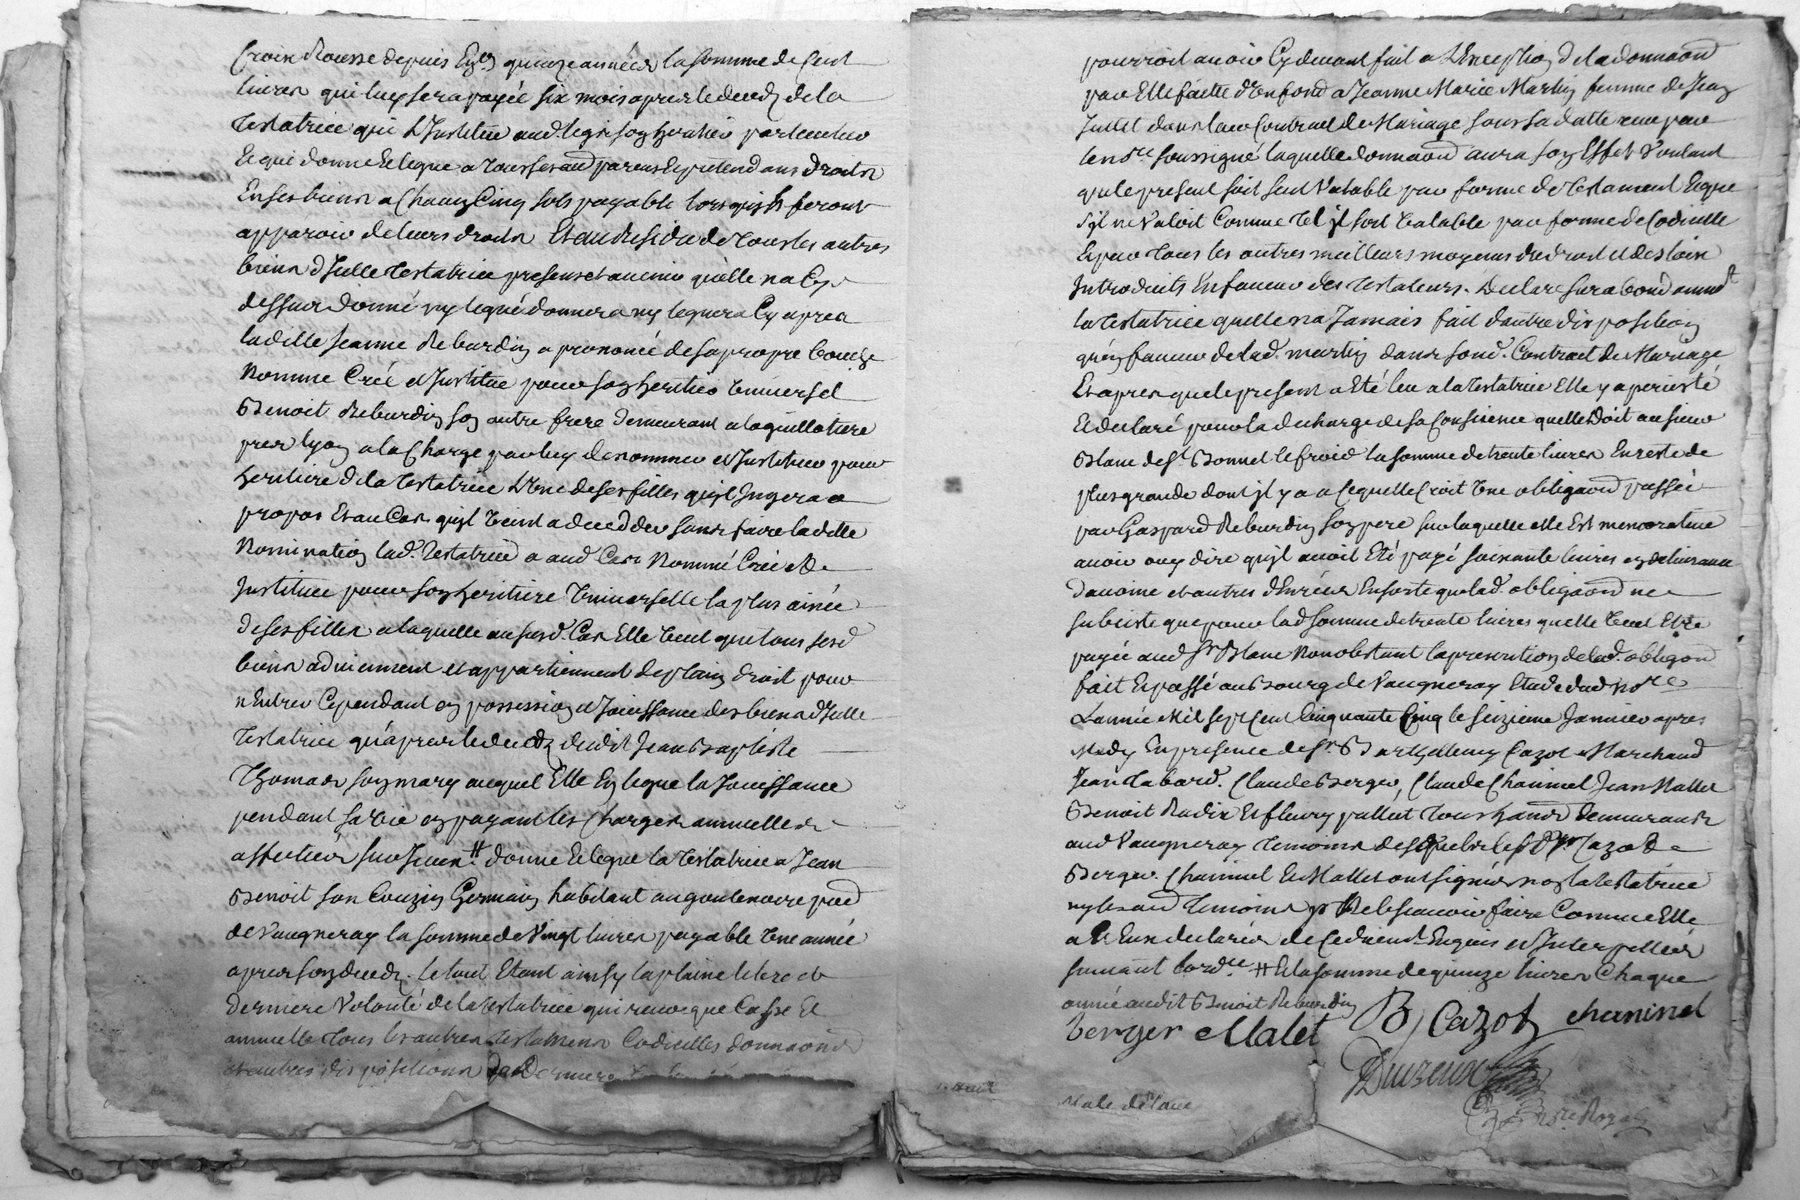 Croix Rousse depuis quinze années la somme de Cent
livres qui luy sera payée six mois apres le deced de la
Testatrice qui L'Institue aud. legs son heritier particulier
Et qui donne Et legue a tous ses aud parens Et pretendans droits
En ses biens a Chacun Cinq sols payable lors qu'ils feront
apparoir de leurs droits Et au residu de tous les autres
biens d'Icelle Testatrice presens et avenir qu'elle n'a Cy
dessus donné ny legué donnera ny leguera Cy apres
laditte Jeanne Reburdin a prononcé de sa propre bouche
Nomme Crée et Institue pour son heritier Universel
Benoit Reburdin son autre frere demeurant a la guillotiere
pres lyon a la Charge par luy de nommer et Instituer pour
heritiere de la Testatrice L'Une de ses filles qu'il Jugera a
propos Et au Cas qu'il Vint a deceder sans faire laditte
Nomination lad. Testatrice a aud Cas Nommé Crée et
Institué pour son heritiere Universelle la plus ainée
de ses filles a laquelle ausud. Cas Elle Veut que tous sesd
biens adviennent et appartiennent de plain droit pour
n'Entrer Cependant en possession et Jouissance des biens d'Icelle
Testatrice qu'apres le deced dudit Jean Baptiste
Thomas son mary auquel Elle En legue la Jouissance
pendant sa vie en payant les Charges annuelles
affectées sur Iceux # donne Et legue la Testatrice a Jean
Benoit son Couzin Germain habitant au goutenoire parr
de Vaugneray la somme de Vingt livres payable Une année
apres son deced. Le tout Etant ainsy la plaine libre et
derniere Volonté de la Testatrice qui revoque Casse Et
annulle tous les autres Testamens Codicilles donnaons
et autres dispositions de derniere
pourroit avoir Cy devant fait a L'Exception de la donnaon
par Elle faitte d'un fond a Jeanne Marie Martin femme de Jean
Juttet dans leur Contract de Mariage sous sa datte recu par
le nore soussigné laquelle donnaon aura son Effet Voulant
que le present soit seul Valable par forme de Testament Et que
s'il ne Valoit Comme tel il soit Valable par forme de Codicille
Et par tous les autres meilleurs moyens de droit et des loix
Introduits En faveur des Testateurs. Declare surabondamment
la Testatrice quelle n'a Jamais fait d'autre disposition
qu'en faveur de lad. martin dans sond. Contract de Mariage
Et apres que le present a Eté leu a la Testatrice Elle y a persisté
Et declaré pour la decharge de sa Consience quelle Doit au sieur
Blanc de St. Bonnet le froid la somme de trente livres En reste de
plus grande dont il y a a Ce quelle Croit Une obligaon passée
par Gaspard Reburdin son pere sur laquelle elle Est memorative
avoir ouy dire qu'il avoit Eté payé soixante livres en delivrance
d'avoine et autres denrées Ensorte que lad. obligaon ne
subsiste que pour lad somme de trente livres quelle Veut Etre
payée aud Sr Blanc Nonobstant la prescription de lad. obligaon
fait Et passé au Bourg de Vaugneray Etude dud nore
L'année Mil sept Cent Cinquante Cinq le seizieme Janvier apres
Midy En presence de sr. Barthelemy Cazot Marchand
Jean Tabard. Claude Berger, Claude Chaninel Jean Mallet
Benoit Radix Et fleury pallut tous habitans demeurants
aud Vaugneray temoins desquels les Srs Cazot
Berger. Chaninel Et Mallet ont signés non la Testatrice
ny les aud temoins p Ne le scavoir faire Comme Elle
a Et Eux declarés de Ce duement Enquis et Interpellés
suivant L'ordce # Et la somme de quinze livres Chaque
année audit Benoit Reburdin
berger Malet B Cazot chaninel
nre Royal